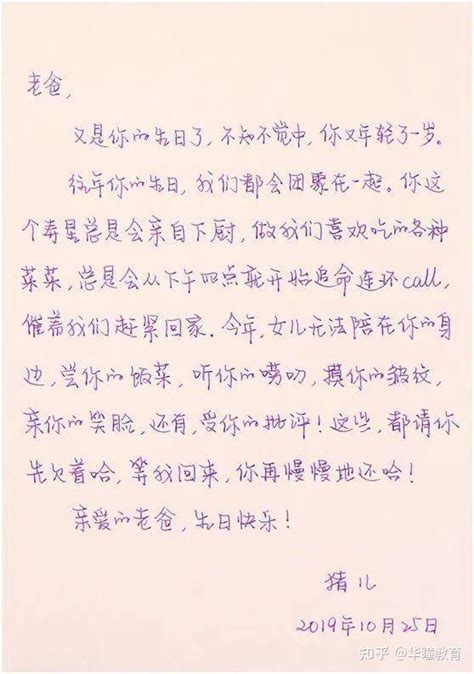 老爸,
又是你的生日了, 不知不觉中, 你又年轻了一岁。
往年你的生日, 我们都会团聚在一起。你这
个寿星总是会亲自下厨, 做我们喜欢吃的各种
菜菜, 总是会从下午四点就开始追命连环call,
催着我们赶紧回家. 今年, 女儿无法陪在你的身
边, 尝你的饭菜, 听你的唠叨, 摸你的皱纹,
亲你的笑脸, 还有, 受你的批评! 这些, 都请你
先欠着哈, 等我回来, 你再慢慢地还哈!
亲爱的老爸, 生日快乐!
猪儿
2019年10月25日
知乎 @华瞳教育